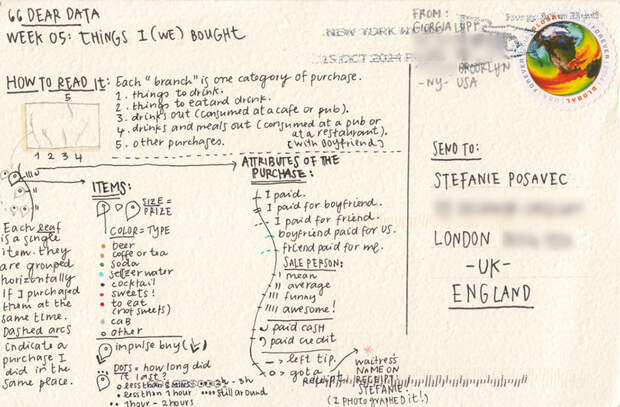 DEAR DATA
WEEK 05: THINGS I (WE) BOUGHT
FROM:
GIORGIA LUPI
BROOKLYN
-NY- USA
NEW YORK
15 OCT 2014
FOREVER
GLOBAL
HOW TO READ IT: Each "branch" is one category of purchase.
1. things to drink.
2. things to eat and drink.
3. drinks out (consumed at a cafe or pub).
4. drinks and meals out (consumed at a pub or at a restaurant).
5. other purchases. (with boyfriend)
5
1 2 3 4
Each leaf
is a single
item. they
are grouped
horizontally
if I purchased
them at the
same time.
Dashed arcs
indicate a
purchase I
did in the
same place.
ITEMS:
SIZE =
PRIZE
COLOR = TYPE
beer
coffe or tea
soda
seltzer water
cocktail
sweets!
to eat
(not sweets)
cab
other
impulse buy
DOTS = how long did
it last?
less than 1 hour
1 hour - 2 hours
still around
ATTRIBUTES OF THE
PURCHASE:
I paid.
I paid for boyfriend.
I paid for friend.
boyfriend paid for us.
friend paid for me.
SALE PERSON:
mean
average
funny
awesome!
paid cash
paid credit
left tip.
got a
receipt.
waitress'
NAME ON
RECEIPT:
STEFANIE!
(I PHOTOGRAPHED it!)
SEND TO:
STEFANIE POSAVEC
LONDON
-UK-
ENGLAND